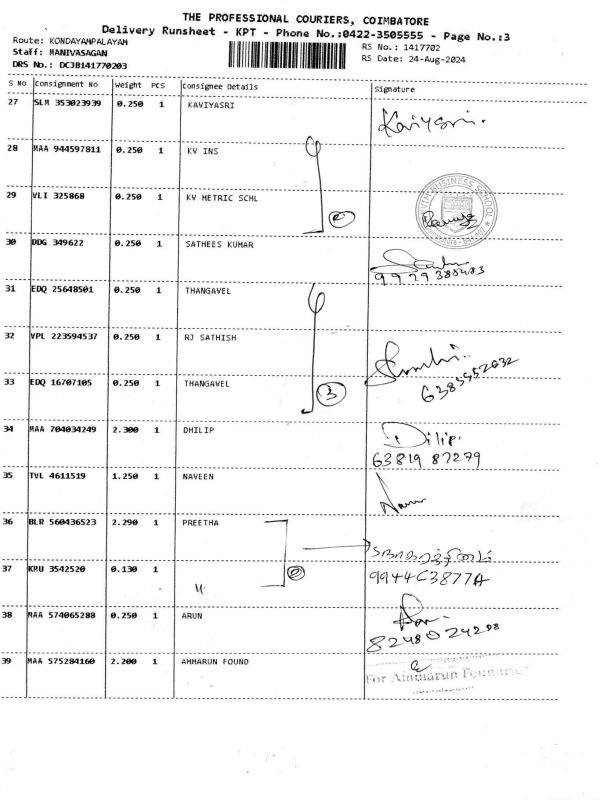 THE PROFESSIONAL COURIERS, COIMBATORE
Delivery Runsheet - KPT - Phone No.:0422-3505555 - Page No.:3
Route: KONDAYAMPALAYAM
Staff: MANIVASAGAN
DRS No.: DCJB141770203
RS No.: 1417702
RS Date: 24-Aug-2024
S No Consignment No Weight PCS Consignee Details Signature
27 SLM 353023939 0.250 1 KAVIYASRI Kaviyasri.
28 MAA 944597811 0.250 1 KV INS
29 VLI 325868 0.250 1 KV METRIC SCHL
BUSINESS SCHOOL
30 DDG 349622 0.250 1 SATHEES KUMAR
31 EDQ 25648501 0.250 1 THANGAVEL
32 VPL 223594537 0.250 1 RJ SATHISH
33 EDQ 16707105 0.250 1 THANGAVEL 3
34 MAA 704034249 2.300 1 DHILIP Dilip.
63819 87279
35 TVL 4611519 1.250 1 NAVEEN
36 BLR 560436523 2.290 1 PREETHA
37 KMU 3542520 0.130 1 "
38 MAA 574065288 0.250 1 ARUN
8248024208
39 MAA 575284160 2.200 1 AMMARUN FOUND
For Ammarun Foundries